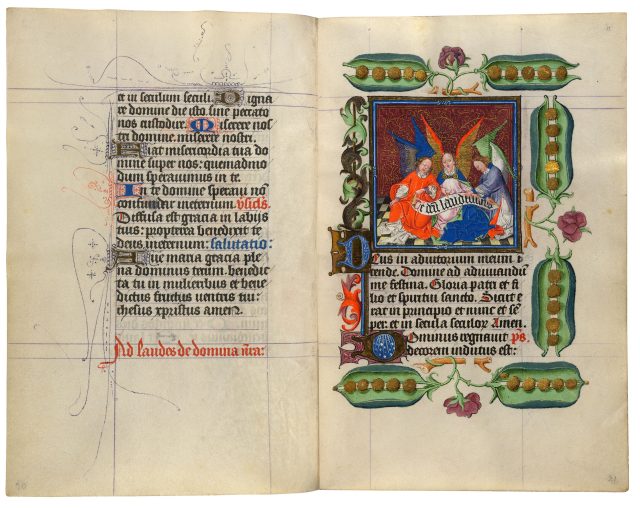 et in seculum seculi. Digna
re domine die isto sine peccato
nos custodire. Miserere nos
tri domine. miserere nostri.
Fiat misericordia tua do
mine super nos: quemadmo
dum sperauimus in te.
In te domine speraui nō
confundar ineternum. vsicls.
Diffusa est gracia in labijs
tuis: propterea benedixit te
deus ineternum: salutatio:
Aue maria gracia ple
na dominus tecum. benedic
ta tu in mulieribus et bene
dictus fructus ventris tui:
ihesus xpristus amen.
Ad laudes de domina nr̄a:
Te deū laudamus
Deus in adiutorium meum in
tende. Domine ad adiuuandū
me festina. Gloria patri et fi
lio et spiritui sancto. Sicut e
rat in principio et nunc et sē
per: et in secula seculorū Amen.
Dominus regnauit ps.
decorem indutus est: